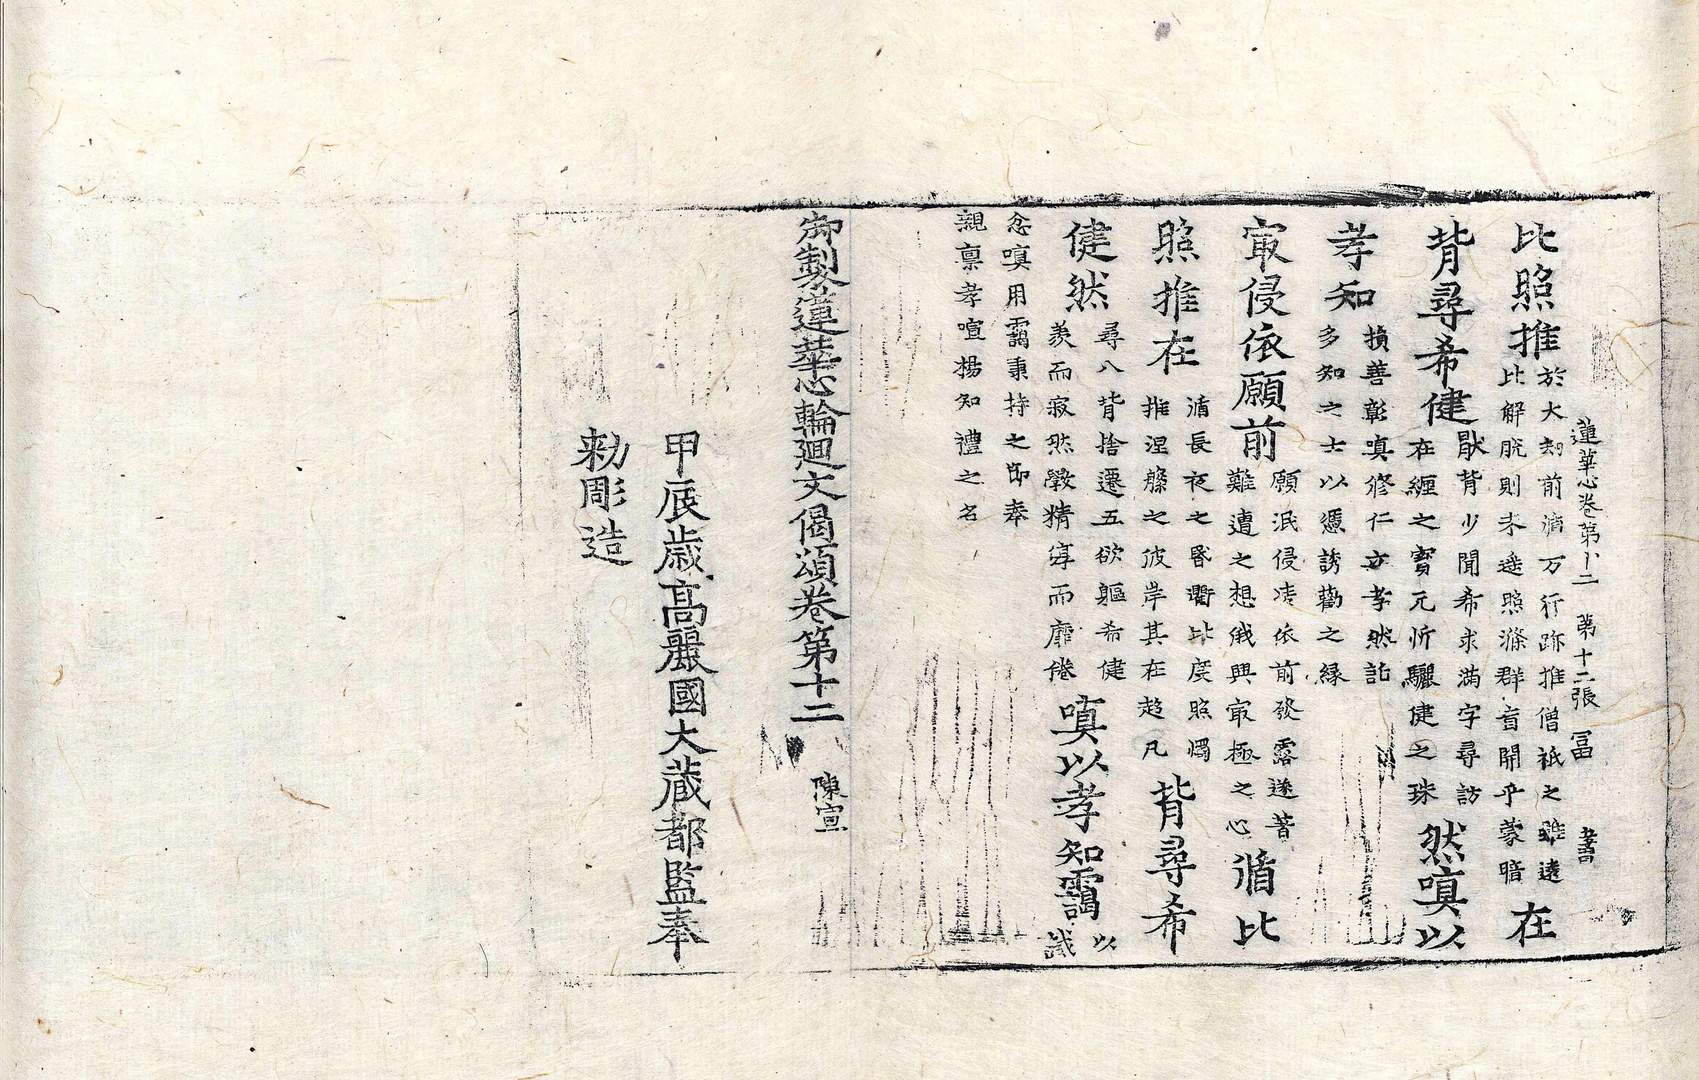 蓮華心卷第十二 第十二張 冨 書
比照推 於大劫前滿万行跡推僧祇之雖遠 比解脫則未遙照滌群盲開乎蒙暗 在
背尋希健 猒背少聞希求滿字尋訪 在纏之寶元忻驪健之珠 然嗔以
孝知 損善彰嗔修仁立孝然託 多知之士以憑誘勸之緣
㝡侵依願前 願泯侵凌依前發露遂著 難遭之想俄興㝡極之心 循比
照推在 循長夜之昏衢比度照燭 推涅槃之彼岸其在超凡 背尋希
健然 尋八背捨遷五欲軀希健 羨而寂然斆精淳而靡倦 嗔以孝知靄 以誡
忿嗔用靄秉持之節奉
親禀孝喧揚知禮之名
御製蓮華心輪廻文偈頌卷第十二 陳宣
甲辰歲高麗國大藏都監奉
勑彫造